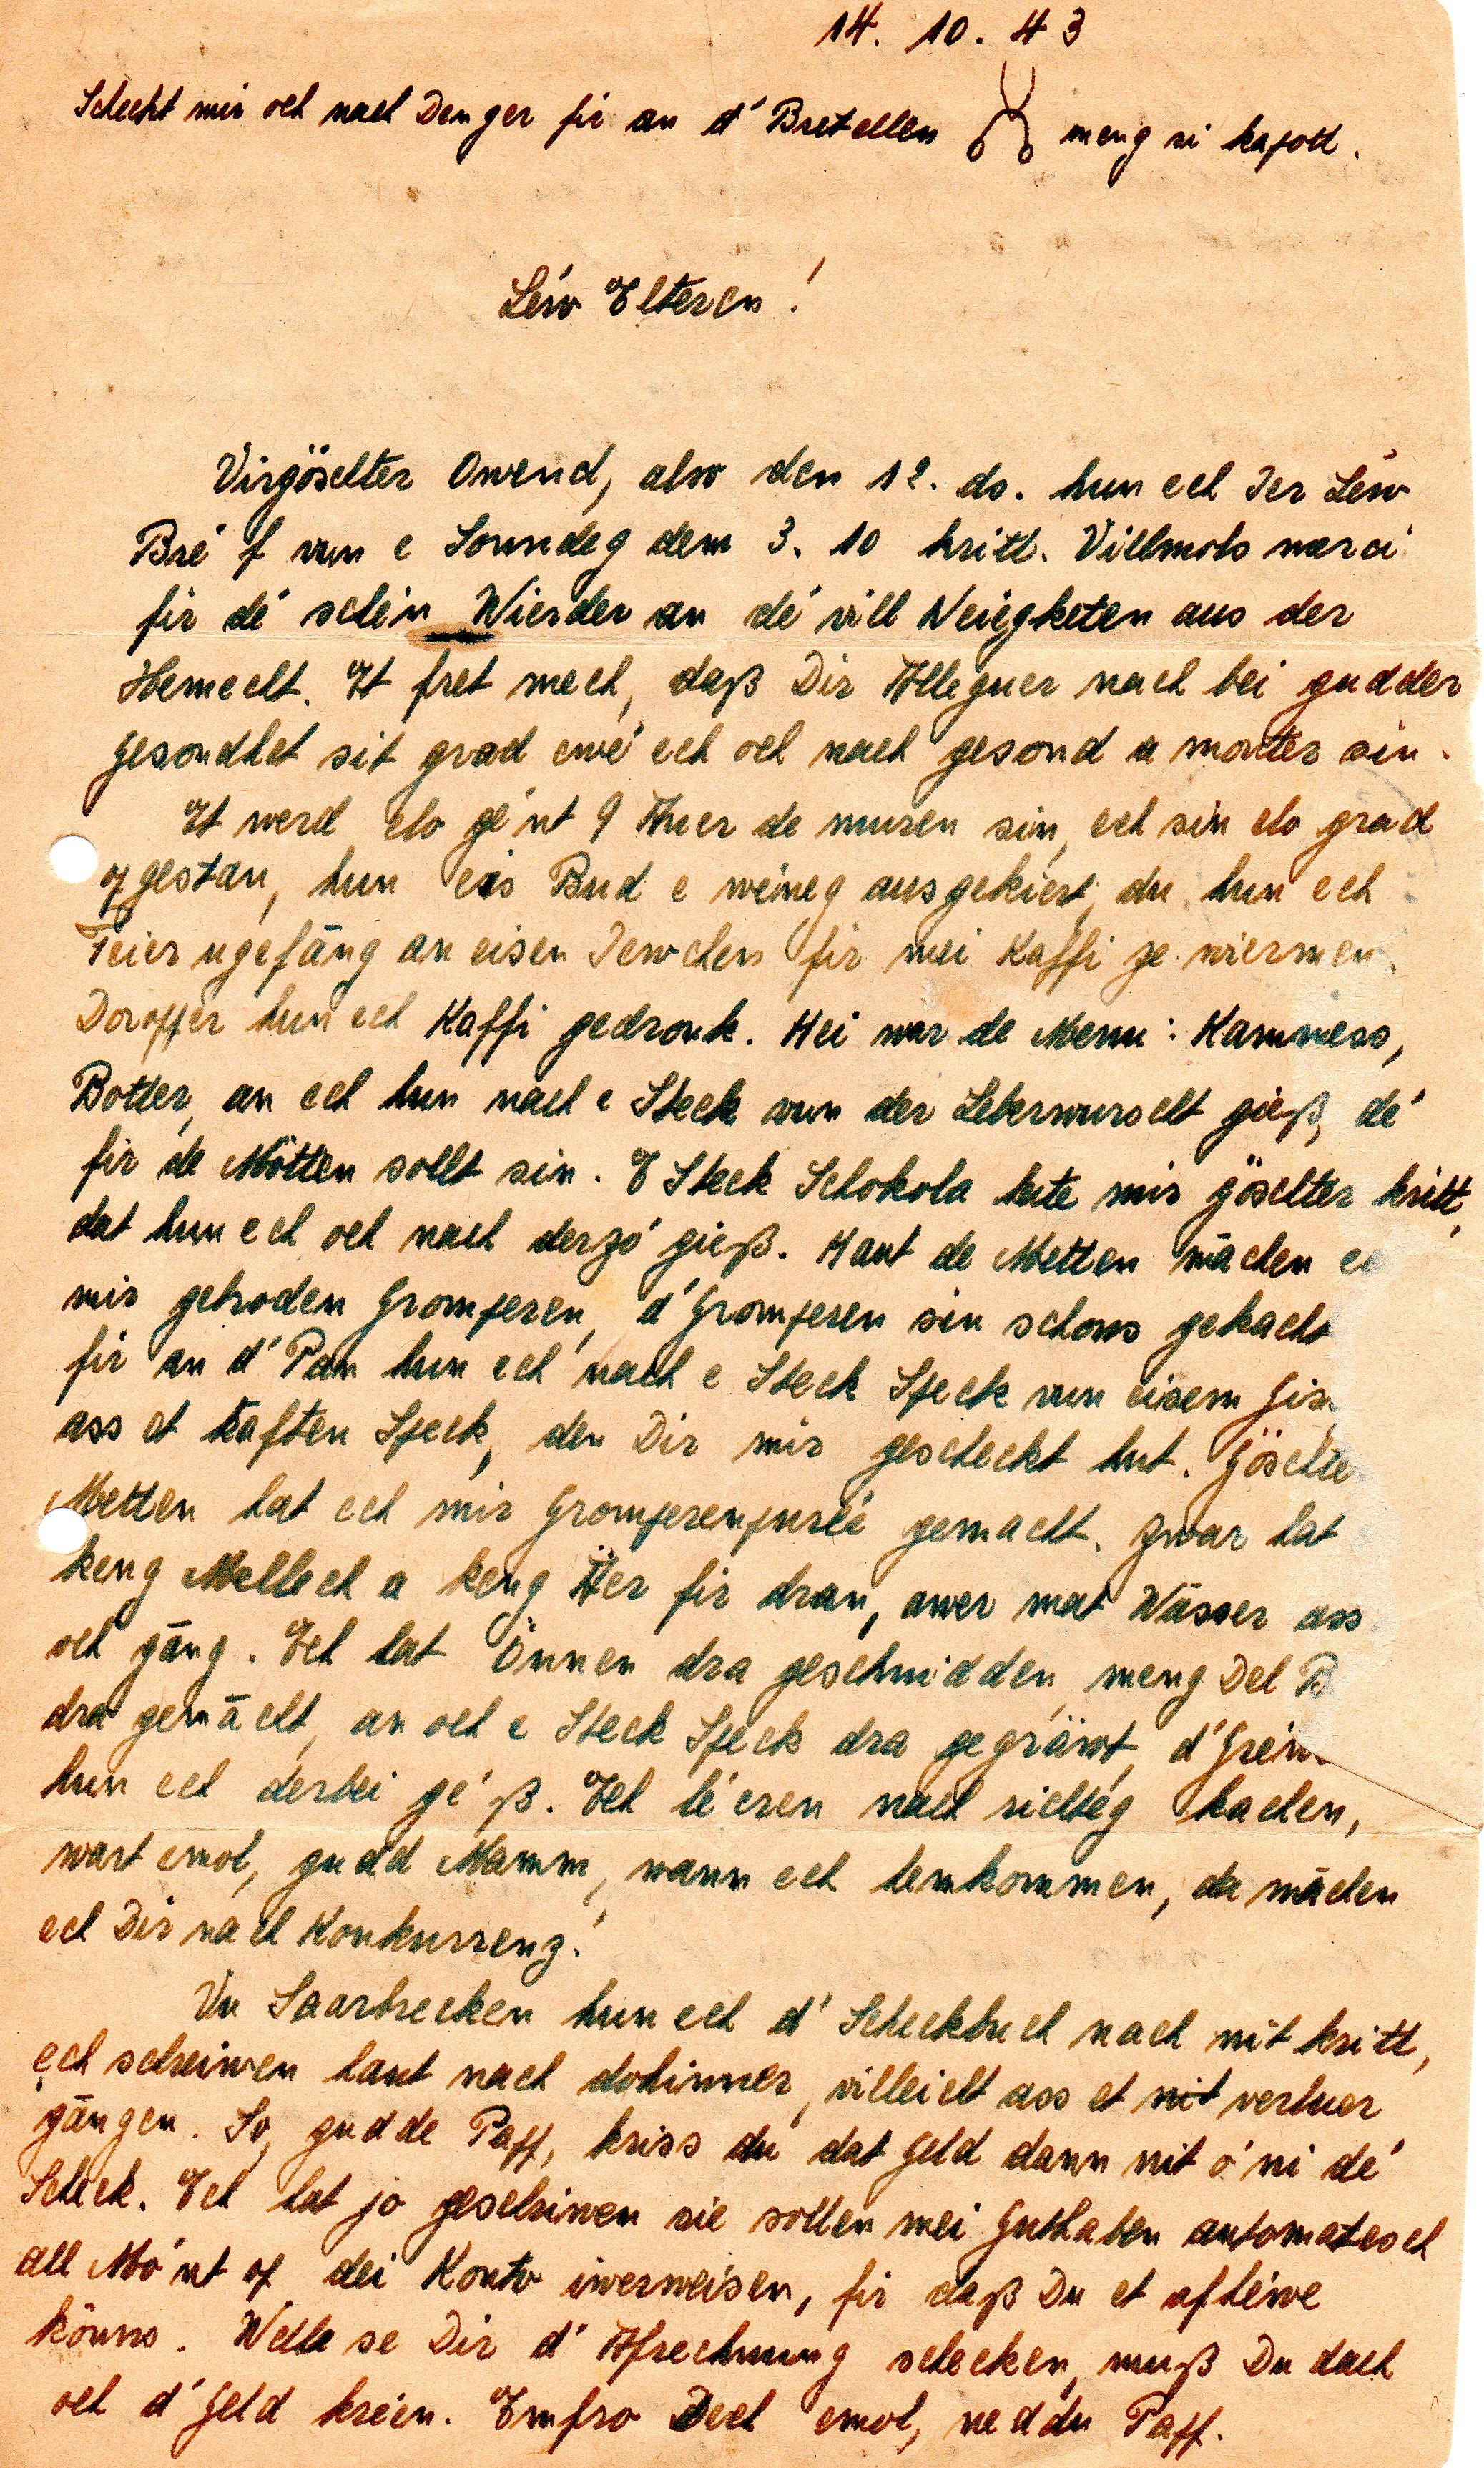 14. 10. 43
Scheckt mir och nach Denger fir an d' Bretellen meng si kapott.
Léiw Elteren!
Virgöschter Owend, also den 12. ds. hun ech Ier Léiw
Bréf vun e Sonndeg dem 3. 10 kritt. Villmols merci
fir dé schéin Wierder an dé vill Neiegketen aus der
Hemecht. Et fret mech, daß Dir Alleguer nach bei gudder
Gesondhet sit grad ewé ech och nach gesond a monter sin.
Et werd elo gént 9 Auer de muren sin, ech sin elo grad
opgestan, hun eis Bud e wéineg ausgekiert, du hun ech
Feier ugefāng an eisen Iewchen fir mei Kaffi ze wiermen.
Doropper hun ech Kaffi gedronk. Hei war de Menu: Kammess,
Botter, an ech hun nach e Steck vun der Leberwurscht gieß, dé
fir de Mötten sollt sin. E Steck Schokola hate mir göschter kritt,
dat hun ech och nach derzó gieß. Haut de Metten māchen
mir gebroden Gromperen, d'Gromperen sin schons gekacht
fir an d'Pan hun ech nach e Steck Speck vun eisem
ass et kaften Speck, den Dir mir gescheckt hut.
Metten hat ech mir Gromperenpuréé gemacht. Zwar hat
keng Mellech a keng Äer fir dran, awer mat Wāsser ass
och gāng. Ech hat Önnen dra geschnidden, meng Del
dra gemācht, an och e Steck Speck dra gegräwt,
hun ech derbei gé ß. Ech léeren nach richtég kachen,
wart emol, gudd Mamm, wann ech hemkommen, da māchen
ech Dir nach Konkurrenz!
Vu Saarbrecken hun ech d' Scheckbuch nach nit kritt,
ech schreiwen haut nach dohinner, villeicht ass et nit verluer
gāngen. So, gudde Papp, kriss du dat Geld dann nit ó'ni dé
Scheck. Ech hat jo geschriwen sie sollen mei Guthaben automatesch
all Mó'nt op dei Konto iwerweisen, fir daß Du et ophéiwe
könns. Welle se Dir d' Afrechnung schecken, muß Du dach
och d'Geld kréien. Emfro Dech emol, ned du Papp.